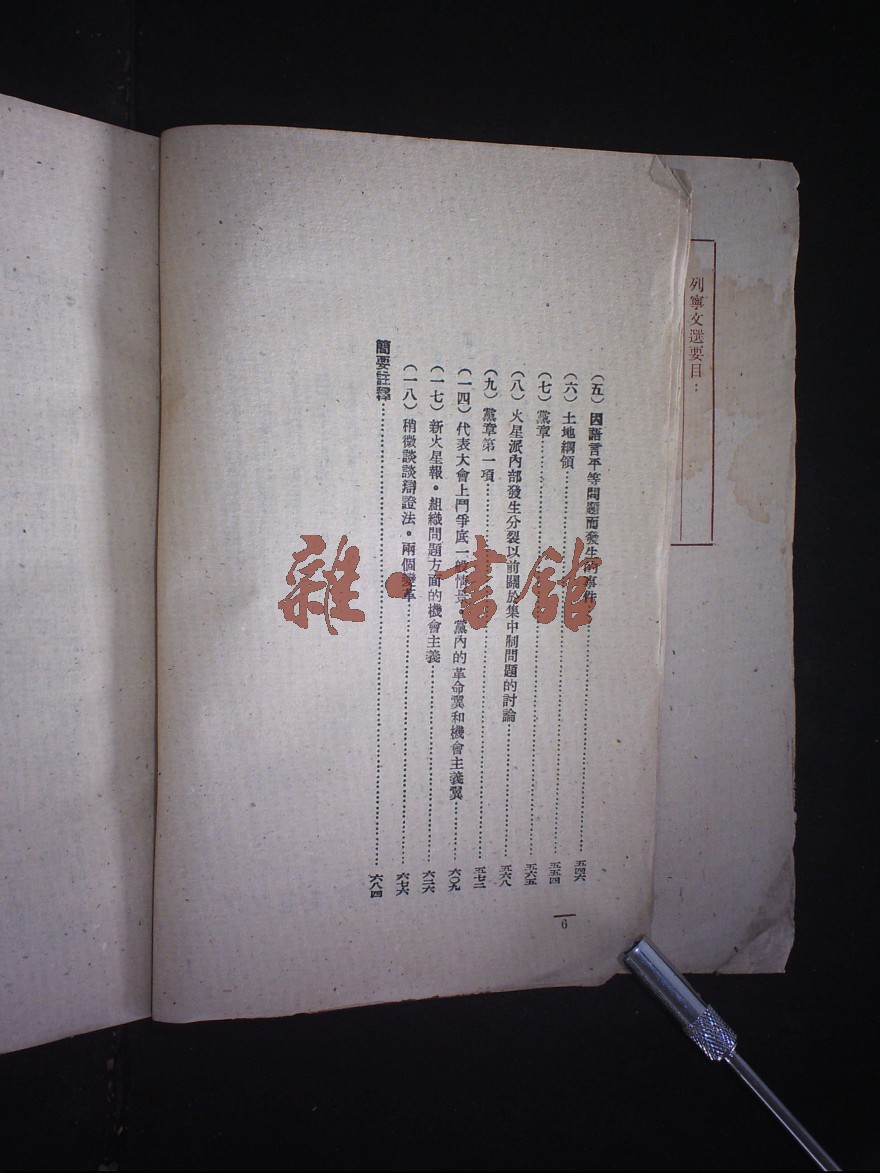 列寧文選要目：
（五）因語言平等問題而發生的事件……五四六
（六）土地綱領……五五四
（七）黨章……五六五
（八）火星派內部發生分裂以前關於集中制問題的討論……五六八
（九）黨章第一項……五七二
（一四）代表大會上鬥爭底一般情景。黨內的革命翼和機會主義翼……六〇九
（一七）新火星報。組織問題方面的機會主義……六二六
（一八）稍微談談辯證法。兩個變革……六七六
簡要註釋……六八四
6
雜·書館